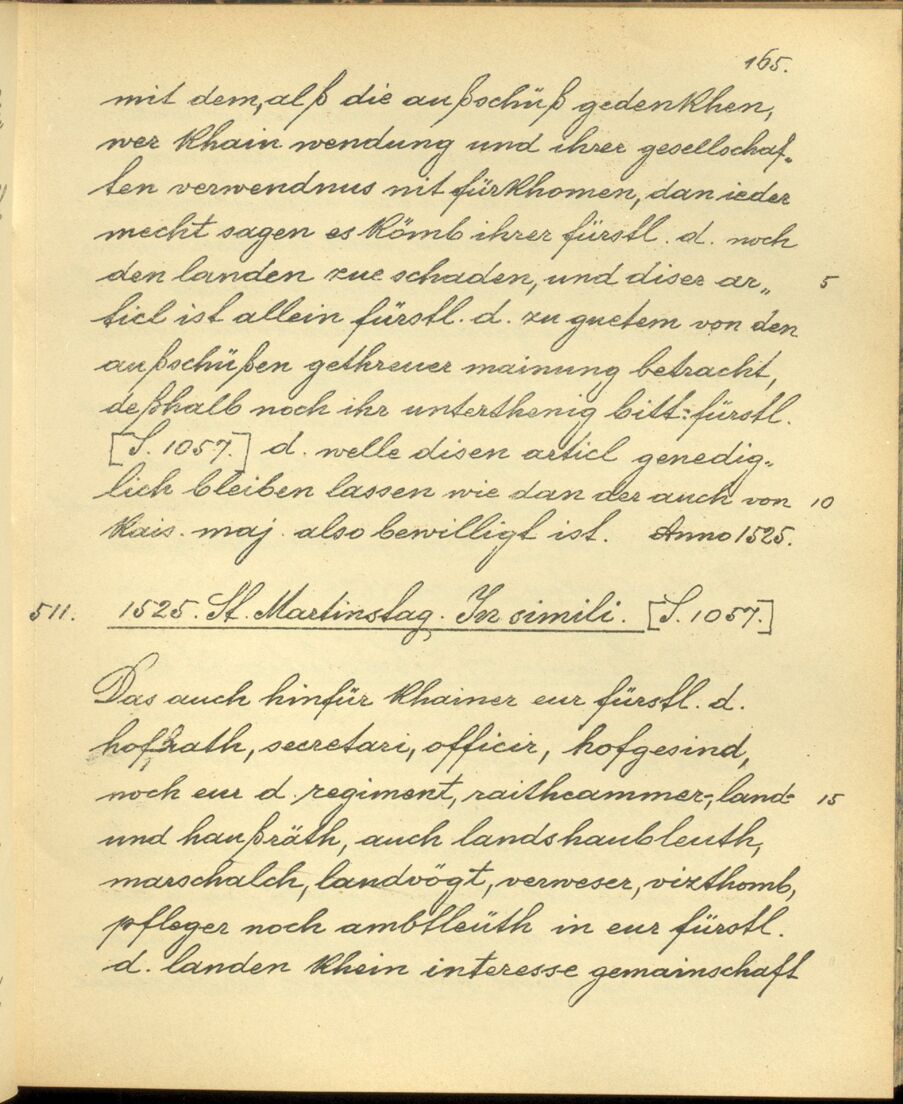 165.
mit dem, alß die außschüß gedenkhen,
wer khain wendung und ihrer gesellschaf„
ten verwendnus nit fürkhomen, dan ieder
mecht sagen es kömb ihrer fürstl. d. noch
den landen zue schaden, und diser ar„ 5
ticl ist allein fürstl. d. zu guetem von den
außschüßen gethreuer mainung betracht,
deßhalb noch ihr unterthenig bitt: fürstl.
[S. 1057.] d. welle disen articl genedig„
lich bleiben lassen wie dan der auch von 10
kais. maj. also bewilligt ist. Anno 1525.
511. 1525. St. Martinstag. In simili. [S. 1057.]
Das auch hinfür khainer eur fürstl. d.
hofrath, secretari, officir, hofgesind,
noch eur d. regiment, raithcammer-, land- 15
und haußräth, auch landshaubleuth,
marschalch, landvögt, verweser, vizthomb,
pfleger noch ambtleüth in eur fürstl.
d. landen khein interesse gemainschaft